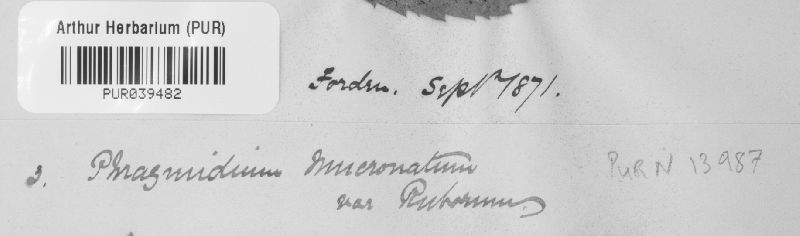 Arthur Herbarium (PUR)
PUR039482
Forden. Sept 1871.
3. Phragmidium mucronatum
var Ruborum
PUR N 13987